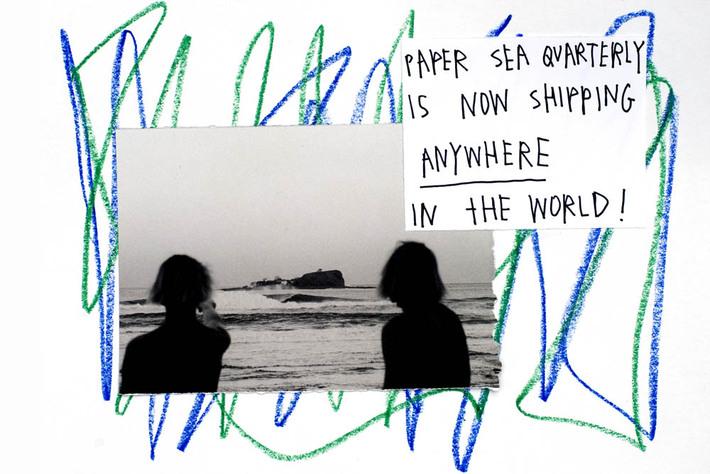 PAPER SEA QUARTERLY
IS NOW SHIPPING
ANYWHERE
IN THE WORLD!